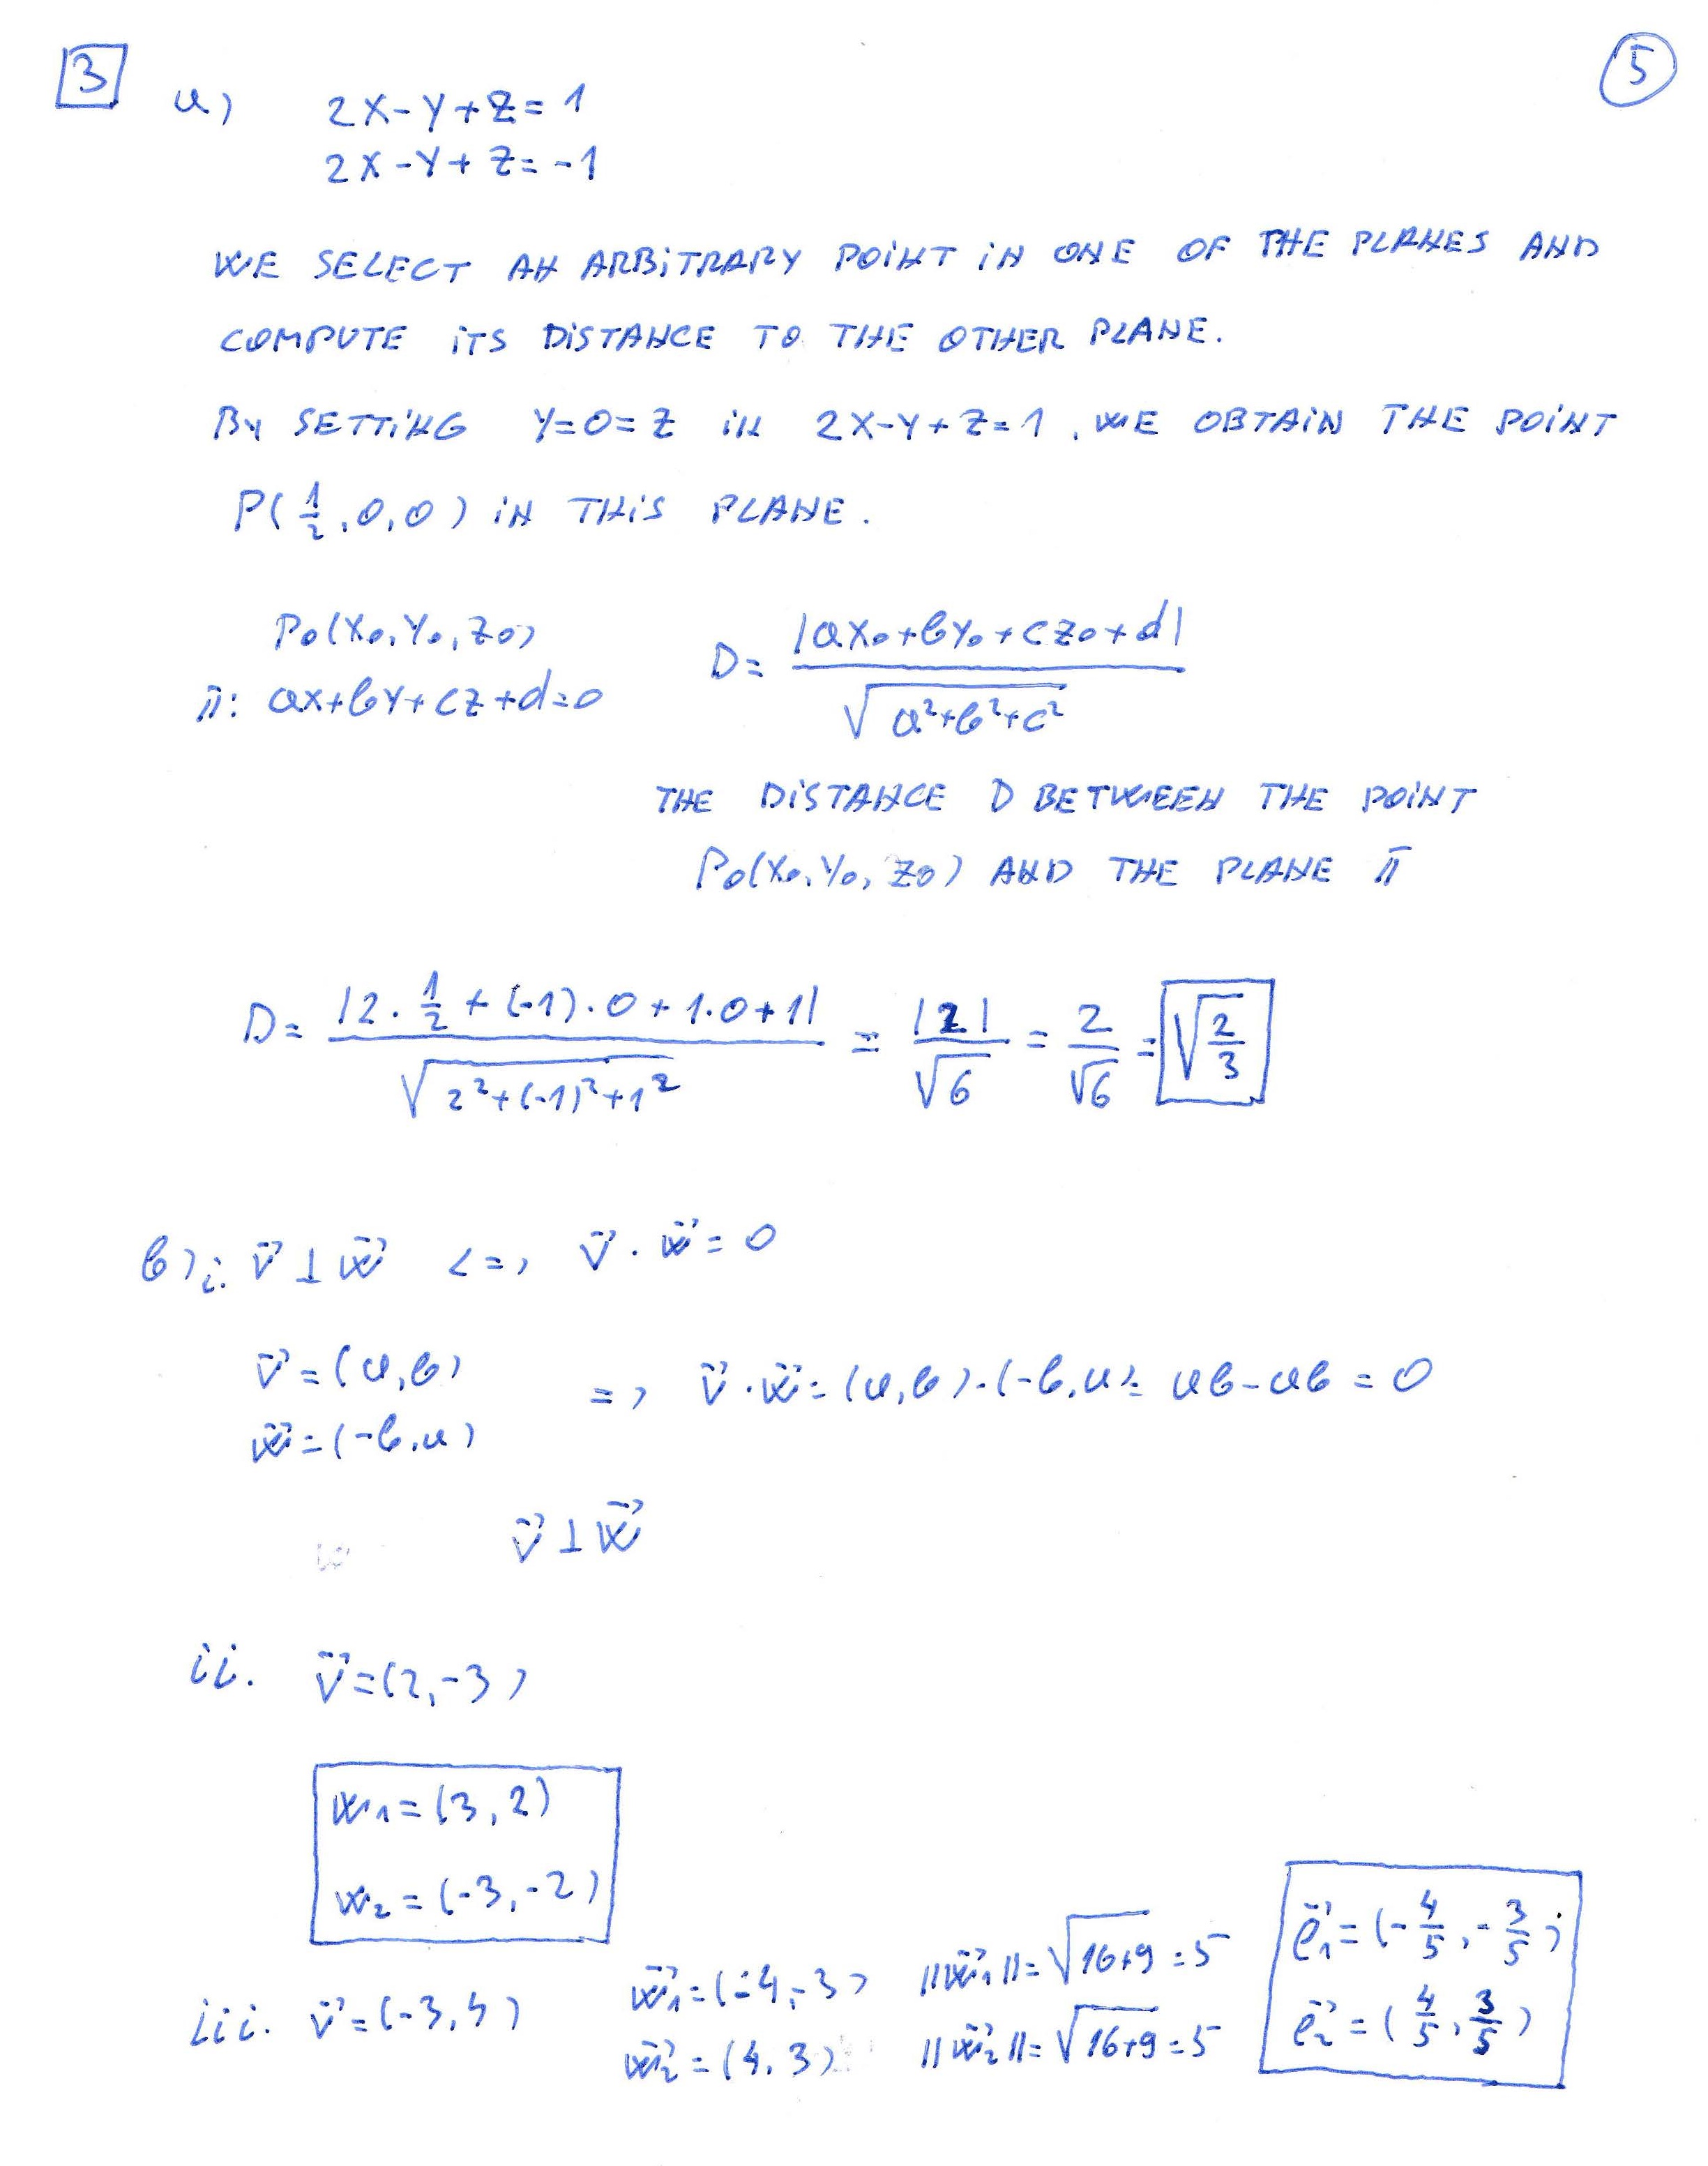 3
5
a) 2x-y+z=1
2x-y+z=-1
WE SELECT AN ARBITRARY POINT IN ONE OF THE PLANES AND
COMPUTE ITS DISTANCE TO THE OTHER PLANE.
BY SETTING y=0=z IN 2x-y+z=1, WE OBTAIN THE POINT
P(1/2,0,0) IN THIS PLANE.
P₀(x₀,y₀,z₀)
π: ax+by+cz+d=0
D= |ax₀+by₀+cz₀+d| / √(a²+b²+c²)
THE DISTANCE D BETWEEN THE POINT
P₀(x₀,y₀,z₀) AND THE PLANE π
D= |2·1/2+(-1)·0+1·0+1| / √(2²+(-1)²+1²) = |2|/√6 = 2/√6 = √(2/3)
b) i. v⃗ ⊥ w⃗ <=> v⃗·w⃗=0
v⃗=(a,b)
w⃗=(-b,a)
=> v⃗·w⃗=(a,b)·(-b,a)= ab-ab=0
v⃗ ⊥ w⃗
ii. v⃗=(2,-3)
w₁=(3,2)
w₂=(-3,-2)
iii. v⃗=(-3,4)
w⃗₁=(-4,-3) ||w⃗₁||=√(16+9)=5
w⃗₂=(4,3) ||w⃗₂||=√(16+9)=5
e⃗₁=(-4/5,-3/5)
e⃗₂=(4/5,3/5)